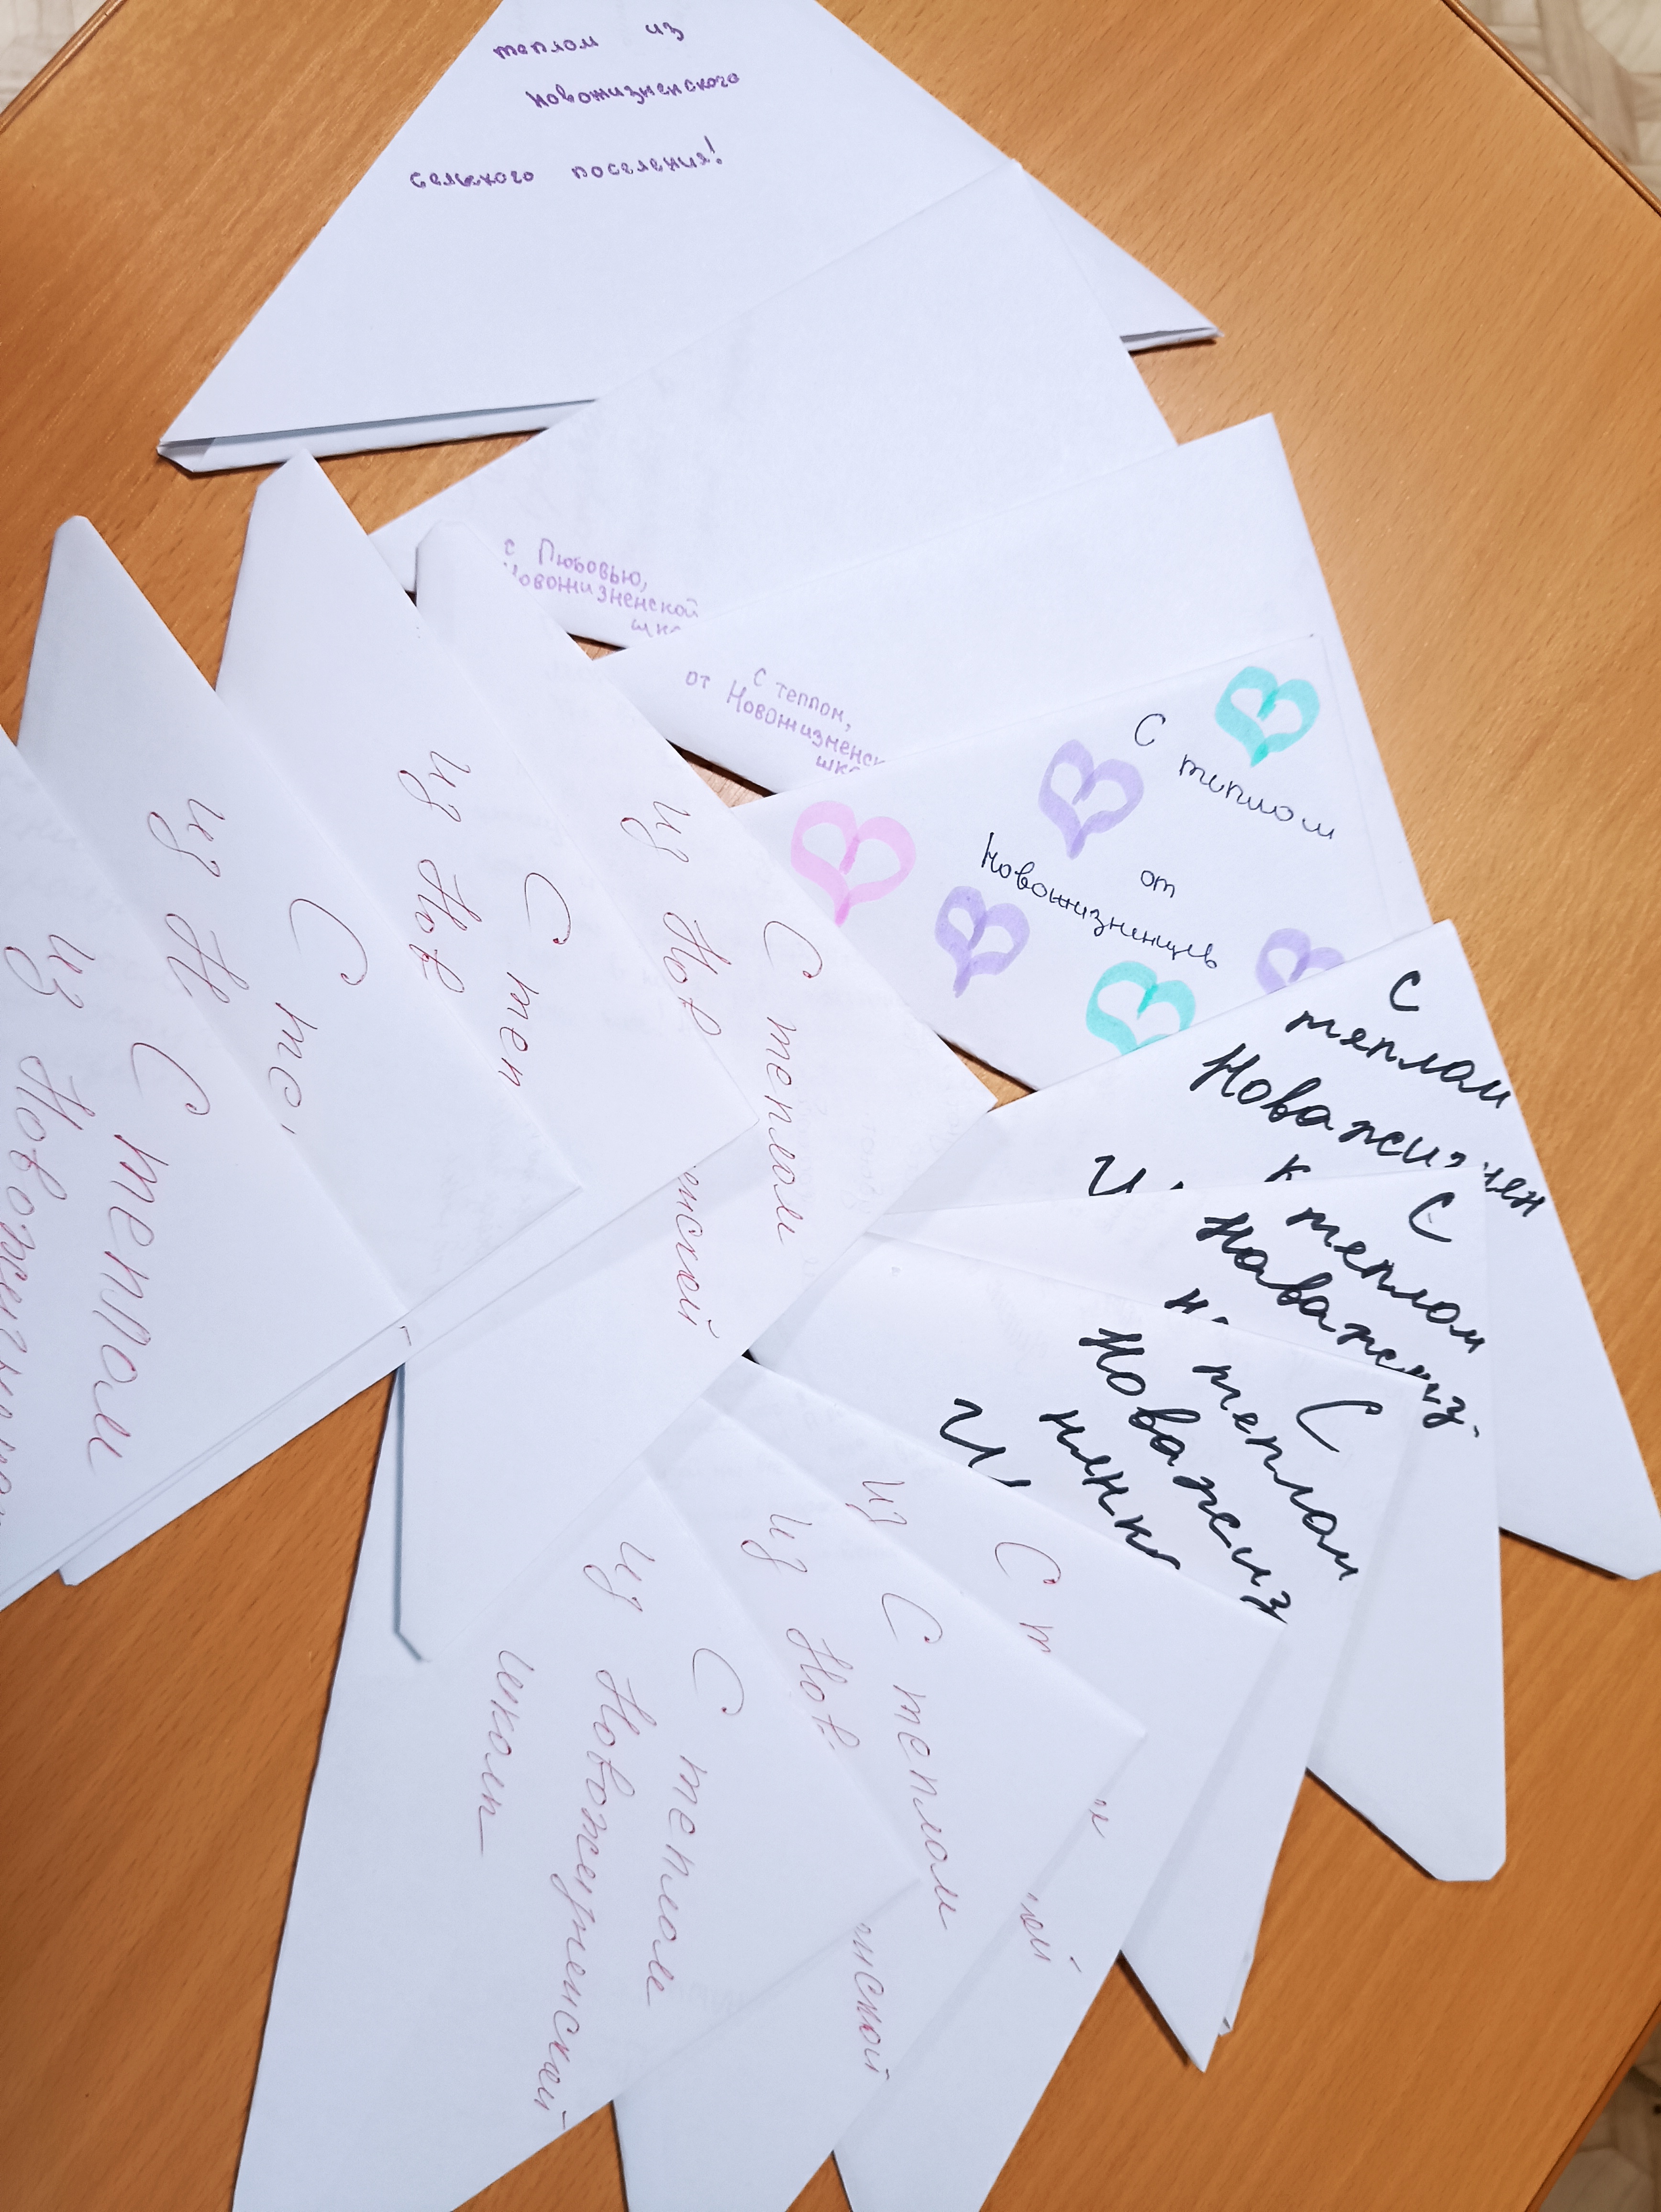 теплом из
Новожизненского
сельского поселения!
с Любовью,
Новожизненской
С теплом,
от Новожизненск
С теплом
от
Новожизненцев
С
тяплом
Новажизнен
С
теплом
Наважиз
С
теплом
Новажиз
нянк
С теплом
из Нов
нской
С теп
из Нов
С те
из Н
С теплом
из Новожизненской
С т
из
С теплом
из Нов
нской
С теплом
из Новожизненской
школы